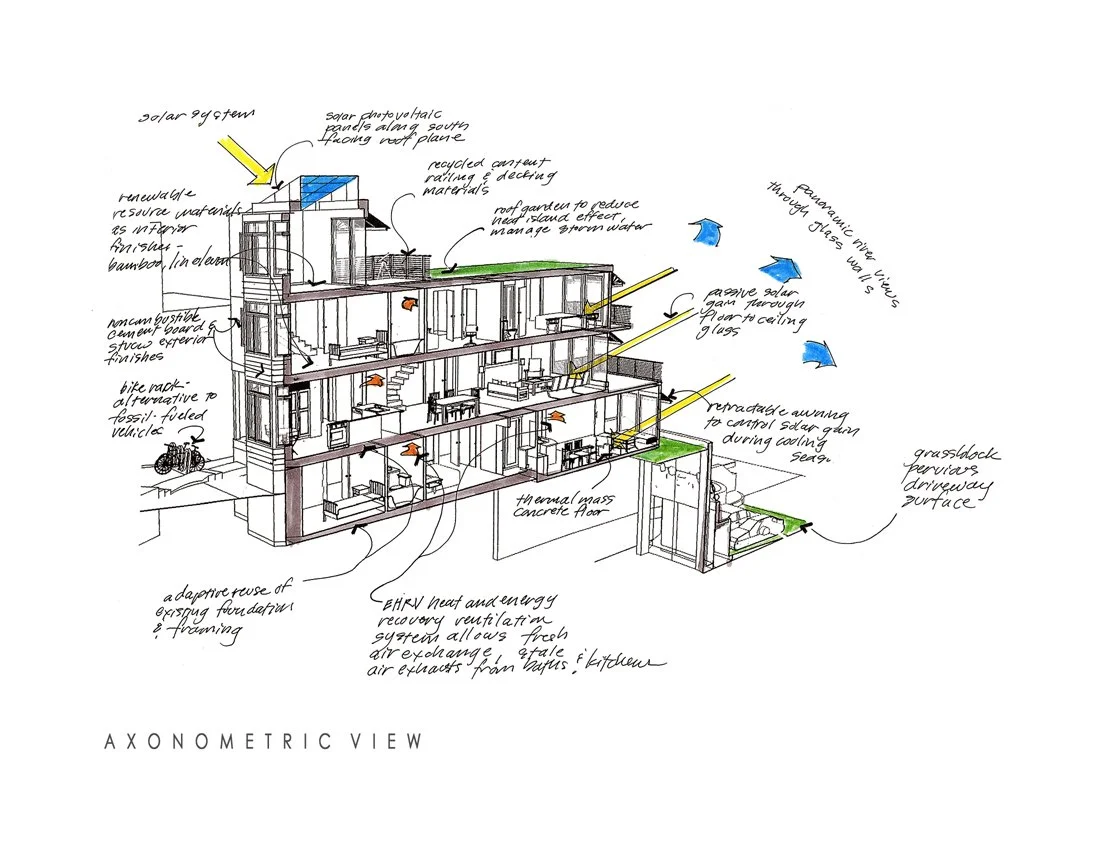 solar system
solar photovoltaic
panels along south
facing roof plane
recycled content
railing & decking
materials
renewable
resource materials
as interior
finishes -
bamboo, linoleum
roof garden to reduce
heat island effect,
manage stormwater
panoramic river views
through glass walls
passive solar
gain through
floor to ceiling
glass
noncombustible
cement board &
stucco exterior
finishes
bike rack -
alternative to
fossil-fueled
vehicles
retractable awning
to control solar gain
during cooling
seas.
grassblock
pervious
driveway
surface
thermal mass
concrete floor
adaptive reuse of
existing foundation
& framing
EHRV heat and energy
recovery ventilation
system allows fresh
air exchange, stale
air exhausts from baths & kitchens
AXONOMETRIC VIEW